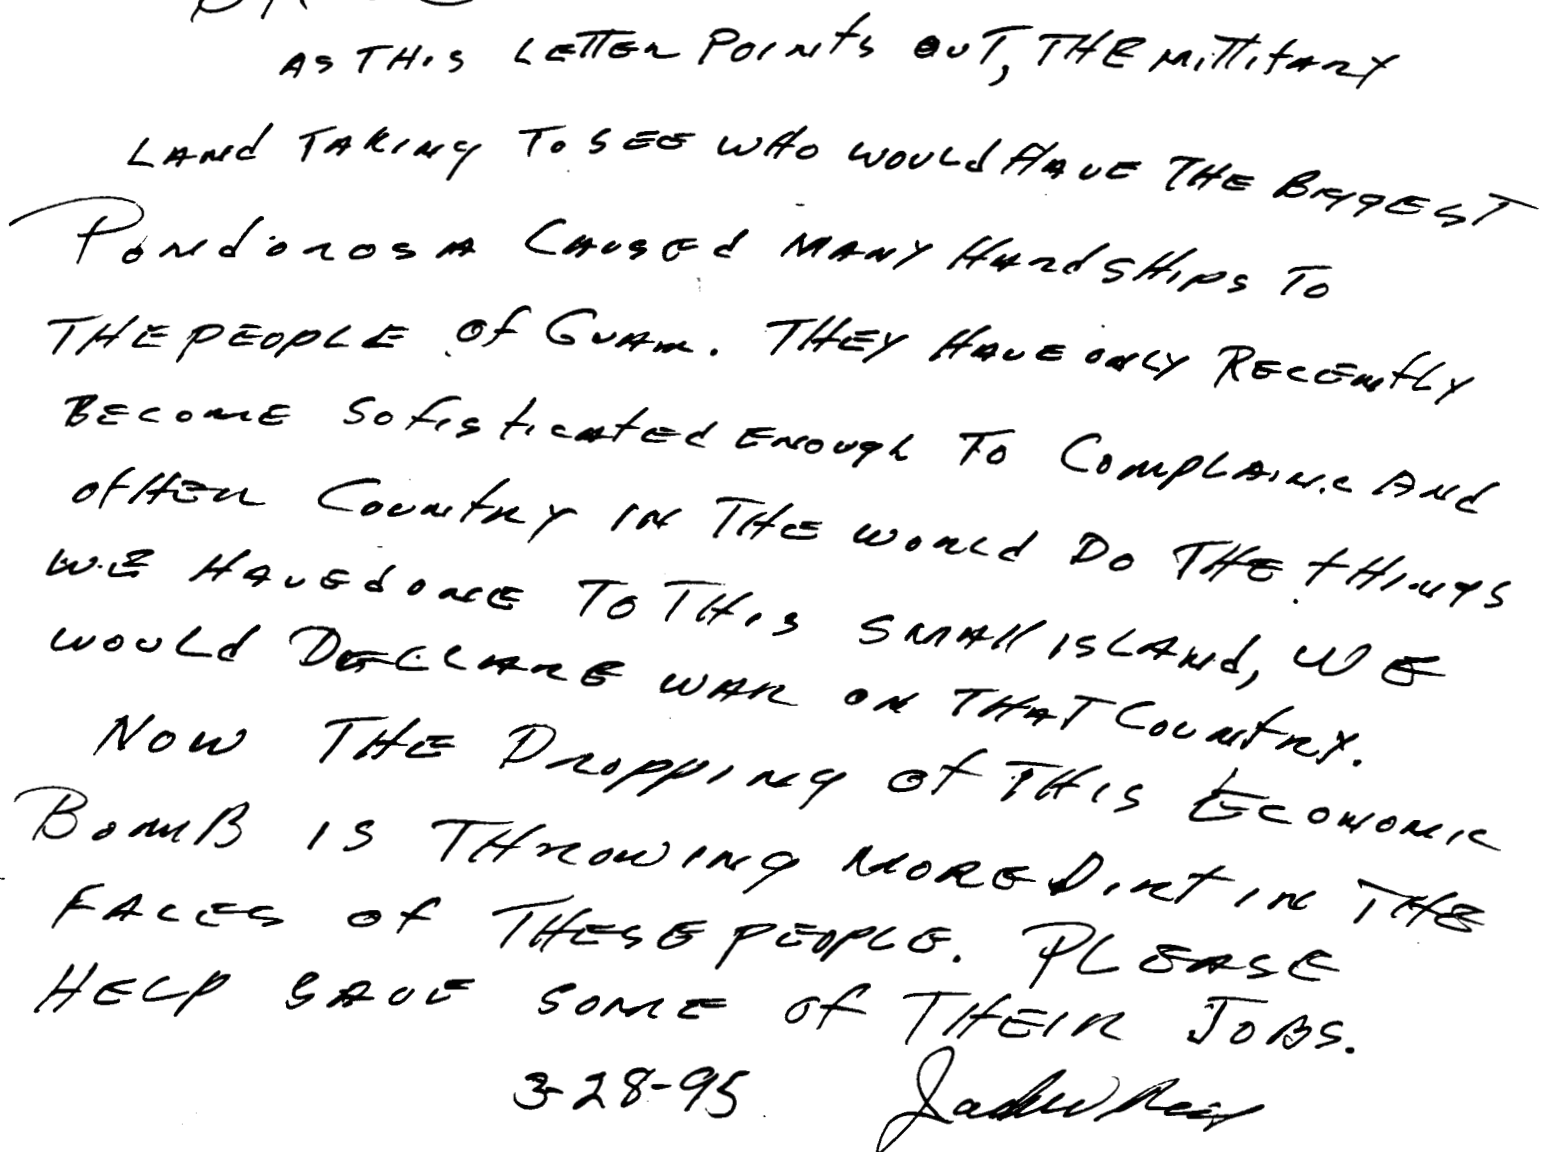 AS THIS LETTER POINTS OUT, THE MITTITARY
LAND TAKING TO SEE WHO WOULD HAVE THE BIGGEST
PONDOROSA CAUSED MANY HARDSHIPS TO
THE PEOPLE OF GUAM. THEY HAVE ONLY RECENTLY
BECOME SOFISTICATED ENOUGH TO COMPLAIN AND
OTHER COUNTRY IN THE WORLD DO THE THINGS
WE HAVE DONE TO THIS SMALL ISLAND, WE
WOULD DECLARE WAR ON THAT COUNTRY.
NOW THE DROPPING OF THIS ECONOMIC
BOMB IS THROWING MORE DIRT IN THE
FACES OF THESE PEOPLE. PLEASE
HELP SAVE SOME OF THEIR JOBS.
3-28-95